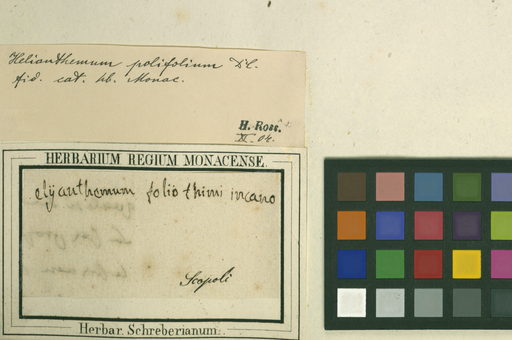 Helianthemum polifolium DC.
fid. cat. hb. Monac.
H. Ross.
XI. 04.
HERBARIUM REGIUM MONACENSE.
elyanthemum folio thimi incano
Scopoli
Herbar. Schreberianum.